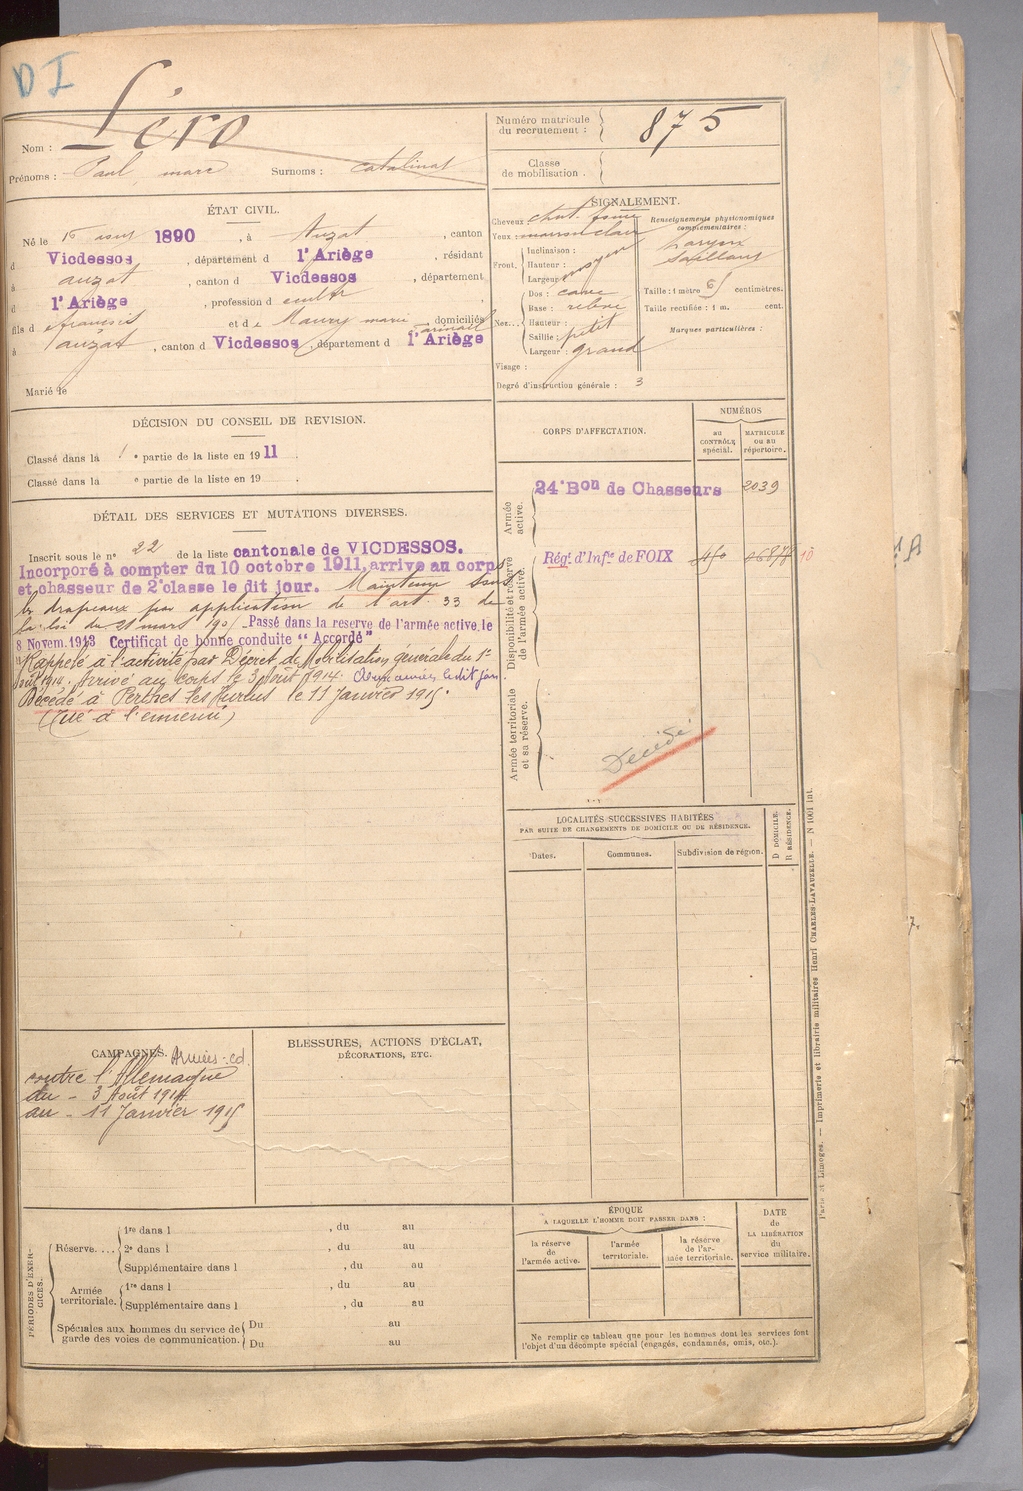 DI
Nom : Péro
Prénoms : Paul marc Surnoms : catalinat
Numéro matricule du recrutement : 875
Classe de mobilisation .
ÉTAT CIVIL.
Né le 15 août 1890 , à Auzat , canton
d Vicdessos , département d l'Ariège , résidant
à auzat , canton d Vicdessos , département
d l'Ariège , profession d
fils d françois et de Maury marie domiciliés
à auzat , canton d Vicdessos , département d l'Ariège
Marié le
SIGNALEMENT.
Cheveux : chat. foncé
Yeux : marron clair
Front. Inclinaison :
Hauteur : moyen
Largeur :
Nez... Dos : cave
Base : relevé
Hauteur :
Saillie : petit
Largeur : grand
Visage :
Degré d'instruction générale : 3
Renseignements physionomiques complémentaires :
Larynx
Saillant
Taille : 1 mètre centimètres.
Taille rectifiée : 1 m. cent.
Marques particulières :
DÉCISION DU CONSEIL DE REVISION.
Classé dans la 1 e partie de la liste en 19 11 .
Classé dans la e partie de la liste en 19 .
DÉTAIL DES SERVICES ET MUTATIONS DIVERSES.
Inscrit sous le n° 22 de la liste cantonale de VICDESSOS.
Incorporé à compter du 10 octobre 1911, arrive au corps
et chasseur de 2e classe le dit jour. Maintenu sous
les drapeaux par application de l'art 33 de
la loi du 21 mars 1905 Passé dans la reserve de l'armée active, le
8 Novem. 1913 Certificat de bonne conduite "Accordé"
Rappelé à l'activité par Décret de Mobilisation générale du 1er
Août 1914. Arrivé au Corps le 3 Août 1914. Aux armées le dit jour
Décédé à Perthes les Hurlus le 11 Janvier 1915.
(Tué à l'ennemi)
CORPS D'AFFECTATION.
NUMÉROS
au CONTRÔLE spécial.
MATRICULE ou au répertoire.
Armée active.
24e Bon de Chasseurs 2039
Disponibilité et réserve de l'armée active.
Régt d'Infie de FOIX
Armée territoriale et sa réserve.
Décédé
LOCALITÉS SUCCESSIVES HABITÉES
PAR SUITE DE CHANGEMENTS DE DOMICILE OU DE RÉSIDENCE.
Dates.
Communes.
Subdivision de région.
D DOMICILE.
R RÉSIDENCE.
CAMPAGNES.
contre l'Allemagne
du - 3 Août 1914
au - 11 Janvier 1915
BLESSURES, ACTIONS D'ÉCLAT,
DÉCORATIONS, ETC.
PÉRIODES D'EXERCICES.
Réserve.... 1re dans l , du au
2e dans l , du au
Supplémentaire dans l , du au
Armée territoriale. 1re dans l , du au
Supplémentaire dans l , du au
Spéciales aux hommes du service de garde des voies de communication. Du au
Du au
ÉPOQUE
A LAQUELLE L'HOMME DOIT PASSER DANS :
la réserve de l'armée active.
l'armée territoriale.
la réserve de l'armée territoriale.
DATE de LA LIBÉRATION du service militaire.
Ne remplir ce tableau que pour les hommes dont les services font
l'objet d'un décompte spécial (engagés, condamnés, omis, etc.).
Paris et Limoges. — Imprimerie et librairie militaires Henri CHARLES-LAVAUZELLE. — N 1001 Int.